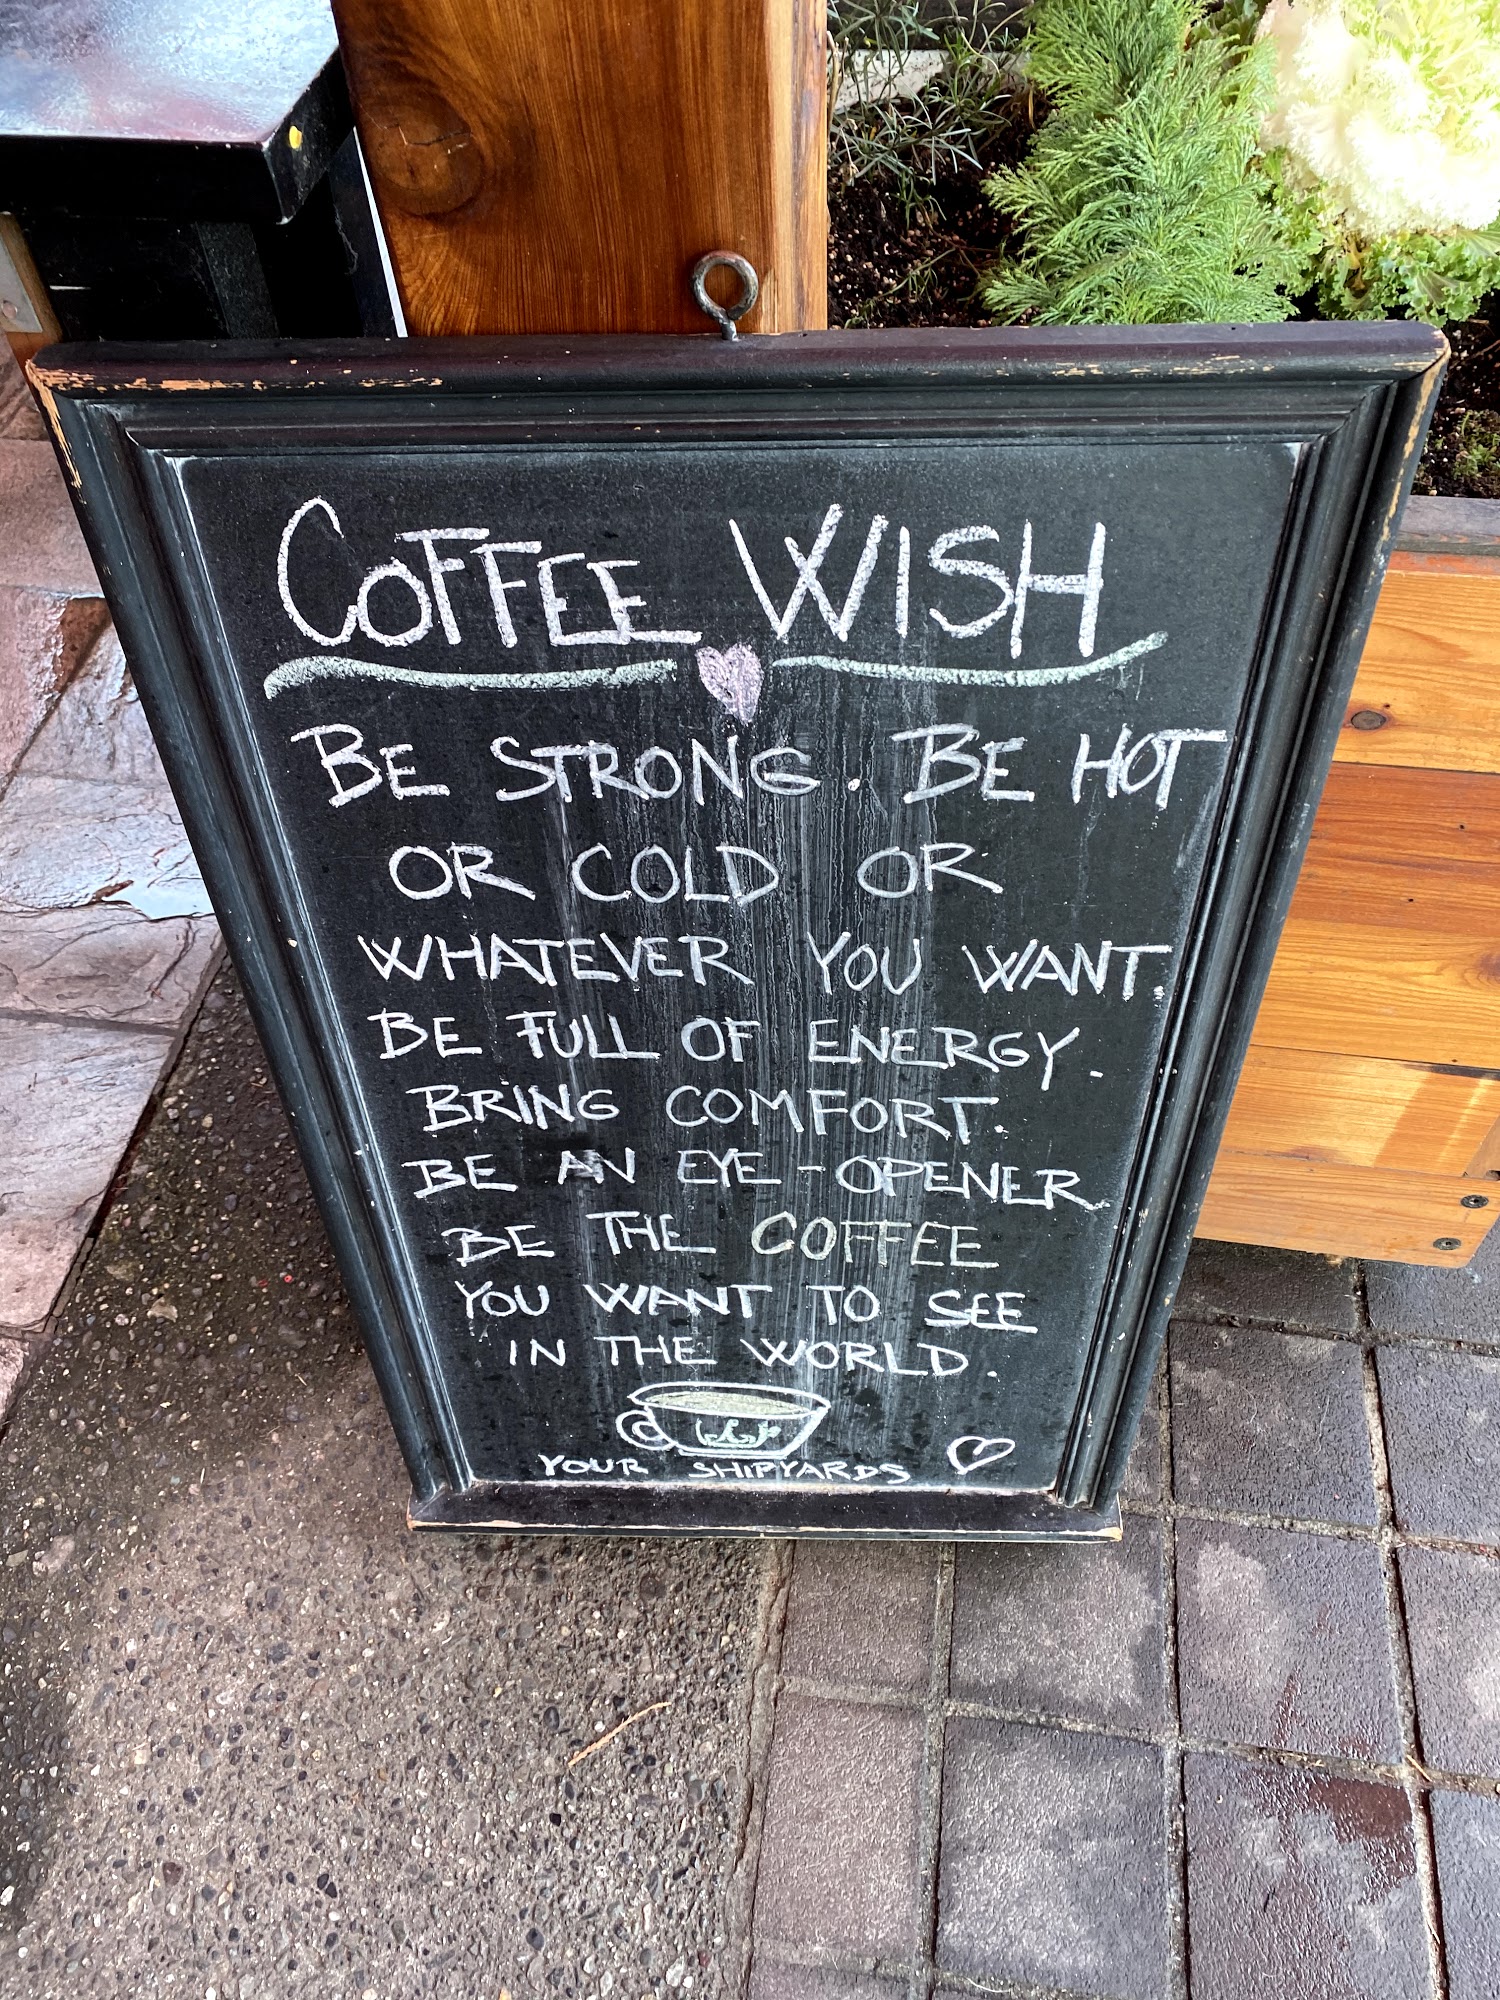 COFFEE WISH
BE STRONG. BE HOT
OR COLD OR
WHATEVER YOU WANT.
BE FULL OF ENERGY.
BRING COMFORT.
BE AN EYE-OPENER
BE THE COFFEE
YOU WANT TO SEE
IN THE WORLD.
YOUR SHIPYARDS